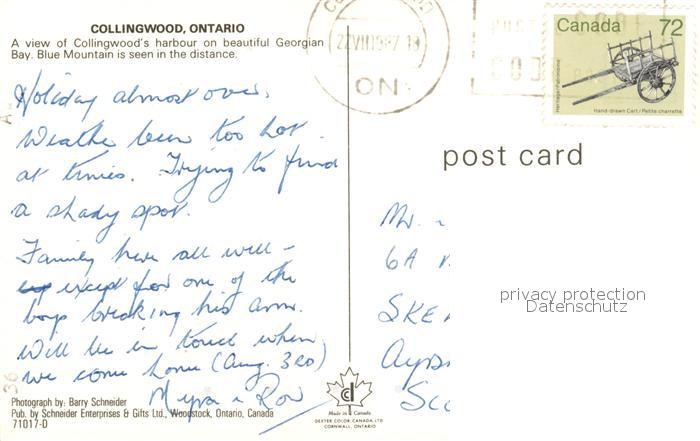 COLLINGWOOD, ONTARIO
A view of Collingwood's harbour on beautiful Georgian
Bay. Blue Mountain is seen in the distance.
22 VII 1987 13
ON
POST
COD
Canada 72
Heritage/Patrimoine
Hand-drawn Cart/Petite charrette
post card
Holiday almost over.
Weathe been too hot
at times. Trying to find
a shady spot.
Family here all well -
except for one of the
boys breaking his arm.
Will be in touch when
we come home (Aug. 3RD)
Myra & Ron
Mr.
6A
SKE
Ayr
Sc
privacy protection
Datenschutz
Photograph by: Barry Schneider
Pub. by Schneider Enterprises & Gifts Ltd., Woodstock, Ontario, Canada
71017-D
Made in Canada
DEXTER COLOR CANADA LTD
CORNWALL, ONTARIO